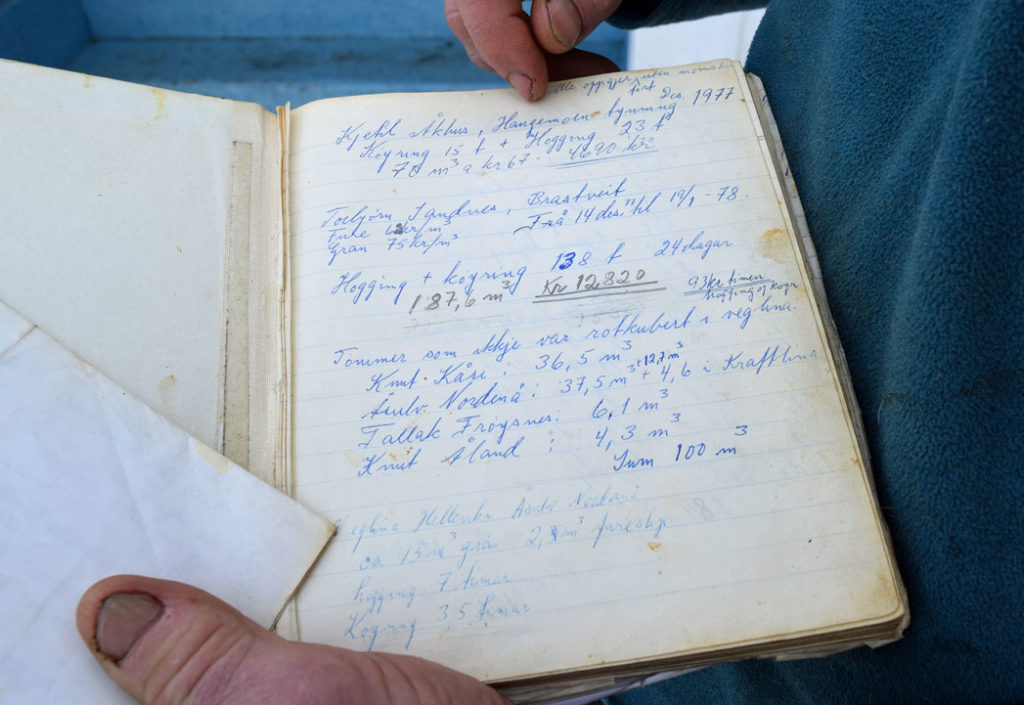 alle oppgjer uten moms
ført Des. 1977
Kjetil Åkhus, Haugemoen tynning
Køyring 15 t + Hogging 23 t
70 m³ a kr 67. 4690 kr
Torbjørn Sandnes, Brastveit
Furu kr/m³ Frå 14 des. til 19/1 - 78.
Gran 75 kr/m³
Hogging + køyring 138 t 24 dagar
187,6 m³ Kr 12820 93 kr timen
hogging og køyr
Tømmer som ikkje var rotkubert i veglina.
Knut Kåsi : 36,5 m³ + 12,7 m³
Åsulv Nordenå : 37,5 m³ + 4,6 i Kraftlina
Tallak Frøysnes : 6,1 m³
Knut Åland : 4,3 m³
Sum 100 m³
Veglina Åsulv Nordenå
ca 15 m³ gran m³
hogging 7 timar
Køyring 3,5 timar